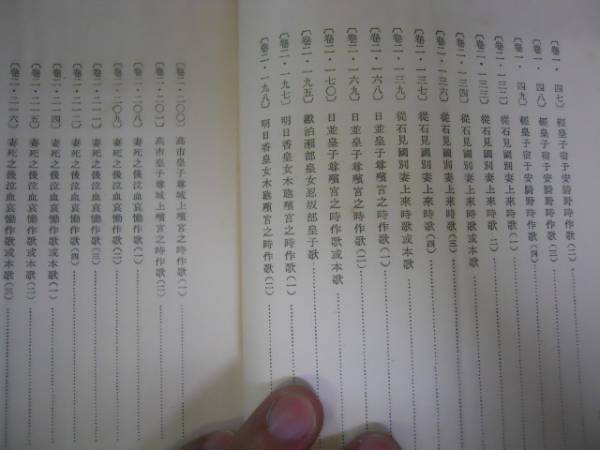 〔卷一・四七〕 輕皇子宿于安騎野時作歌(二)
〔卷一・四八〕 輕皇子宿于安騎野時作歌(三)
〔卷一・四九〕 輕皇子宿于安騎野時作歌(四)
〔卷二・一三二〕 從石見國別妻上來時歌(一)
〔卷二・一三三〕 從石見國別妻上來時歌(二)
〔卷二・一三四〕 從石見國別妻上來時歌或本歌
〔卷二・一三六〕 從石見國別妻上來時歌(三)
〔卷二・一三七〕 從石見國別妻上來時歌(四)
〔卷二・一三九〕 從石見國別妻上來時歌或本歌
〔卷二・一六八〕 日並皇子尊殯宮之時作歌(一)
〔卷二・一六九〕 日並皇子尊殯宮之時作歌(二)
〔卷二・一七〇〕 日並皇子尊殯宮之時作歌或本歌
〔卷二・一九五〕 獻泊瀬部皇女忍坂部皇子歌
〔卷二・一九七〕 明日香皇女木𨂻殯宮之時作歌(一)
〔卷二・一九八〕 明日香皇女木𨂻殯宮之時作歌(二)
〔卷二・二〇〇〕 高市皇子尊城上殯宮之時作歌(一)
〔卷二・二〇一〕 高市皇子尊城上殯宮之時作歌(二)
〔卷二・二〇八〕 妻死之後泣血哀慟作歌(一)
〔卷二・二〇九〕 妻死之後泣血哀慟作歌(二)
〔卷二・二一一〕 妻死之後泣血哀慟作歌(三)
〔卷二・二一二〕 妻死之後泣血哀慟作歌(四)
〔卷二・二一四〕 妻死之後泣血哀慟作歌或本歌(一)
〔卷二・二一五〕 妻死之後泣血哀慟作歌或本歌(二)
〔卷二・二一六〕 妻死之後泣血哀慟作歌或本歌(三)